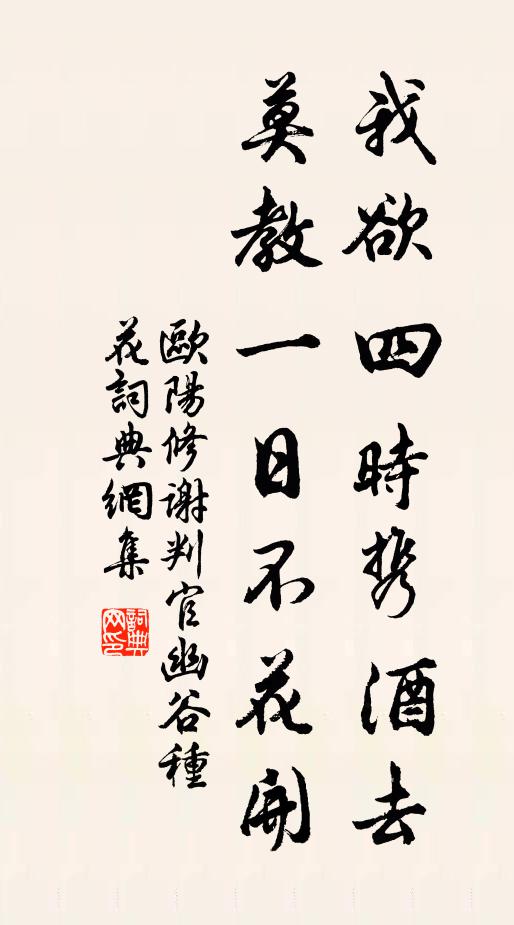 我欲四時攜酒去
莫教一日不花開
歐陽修謝判官幽谷種
花詞典網集
詞典
网印